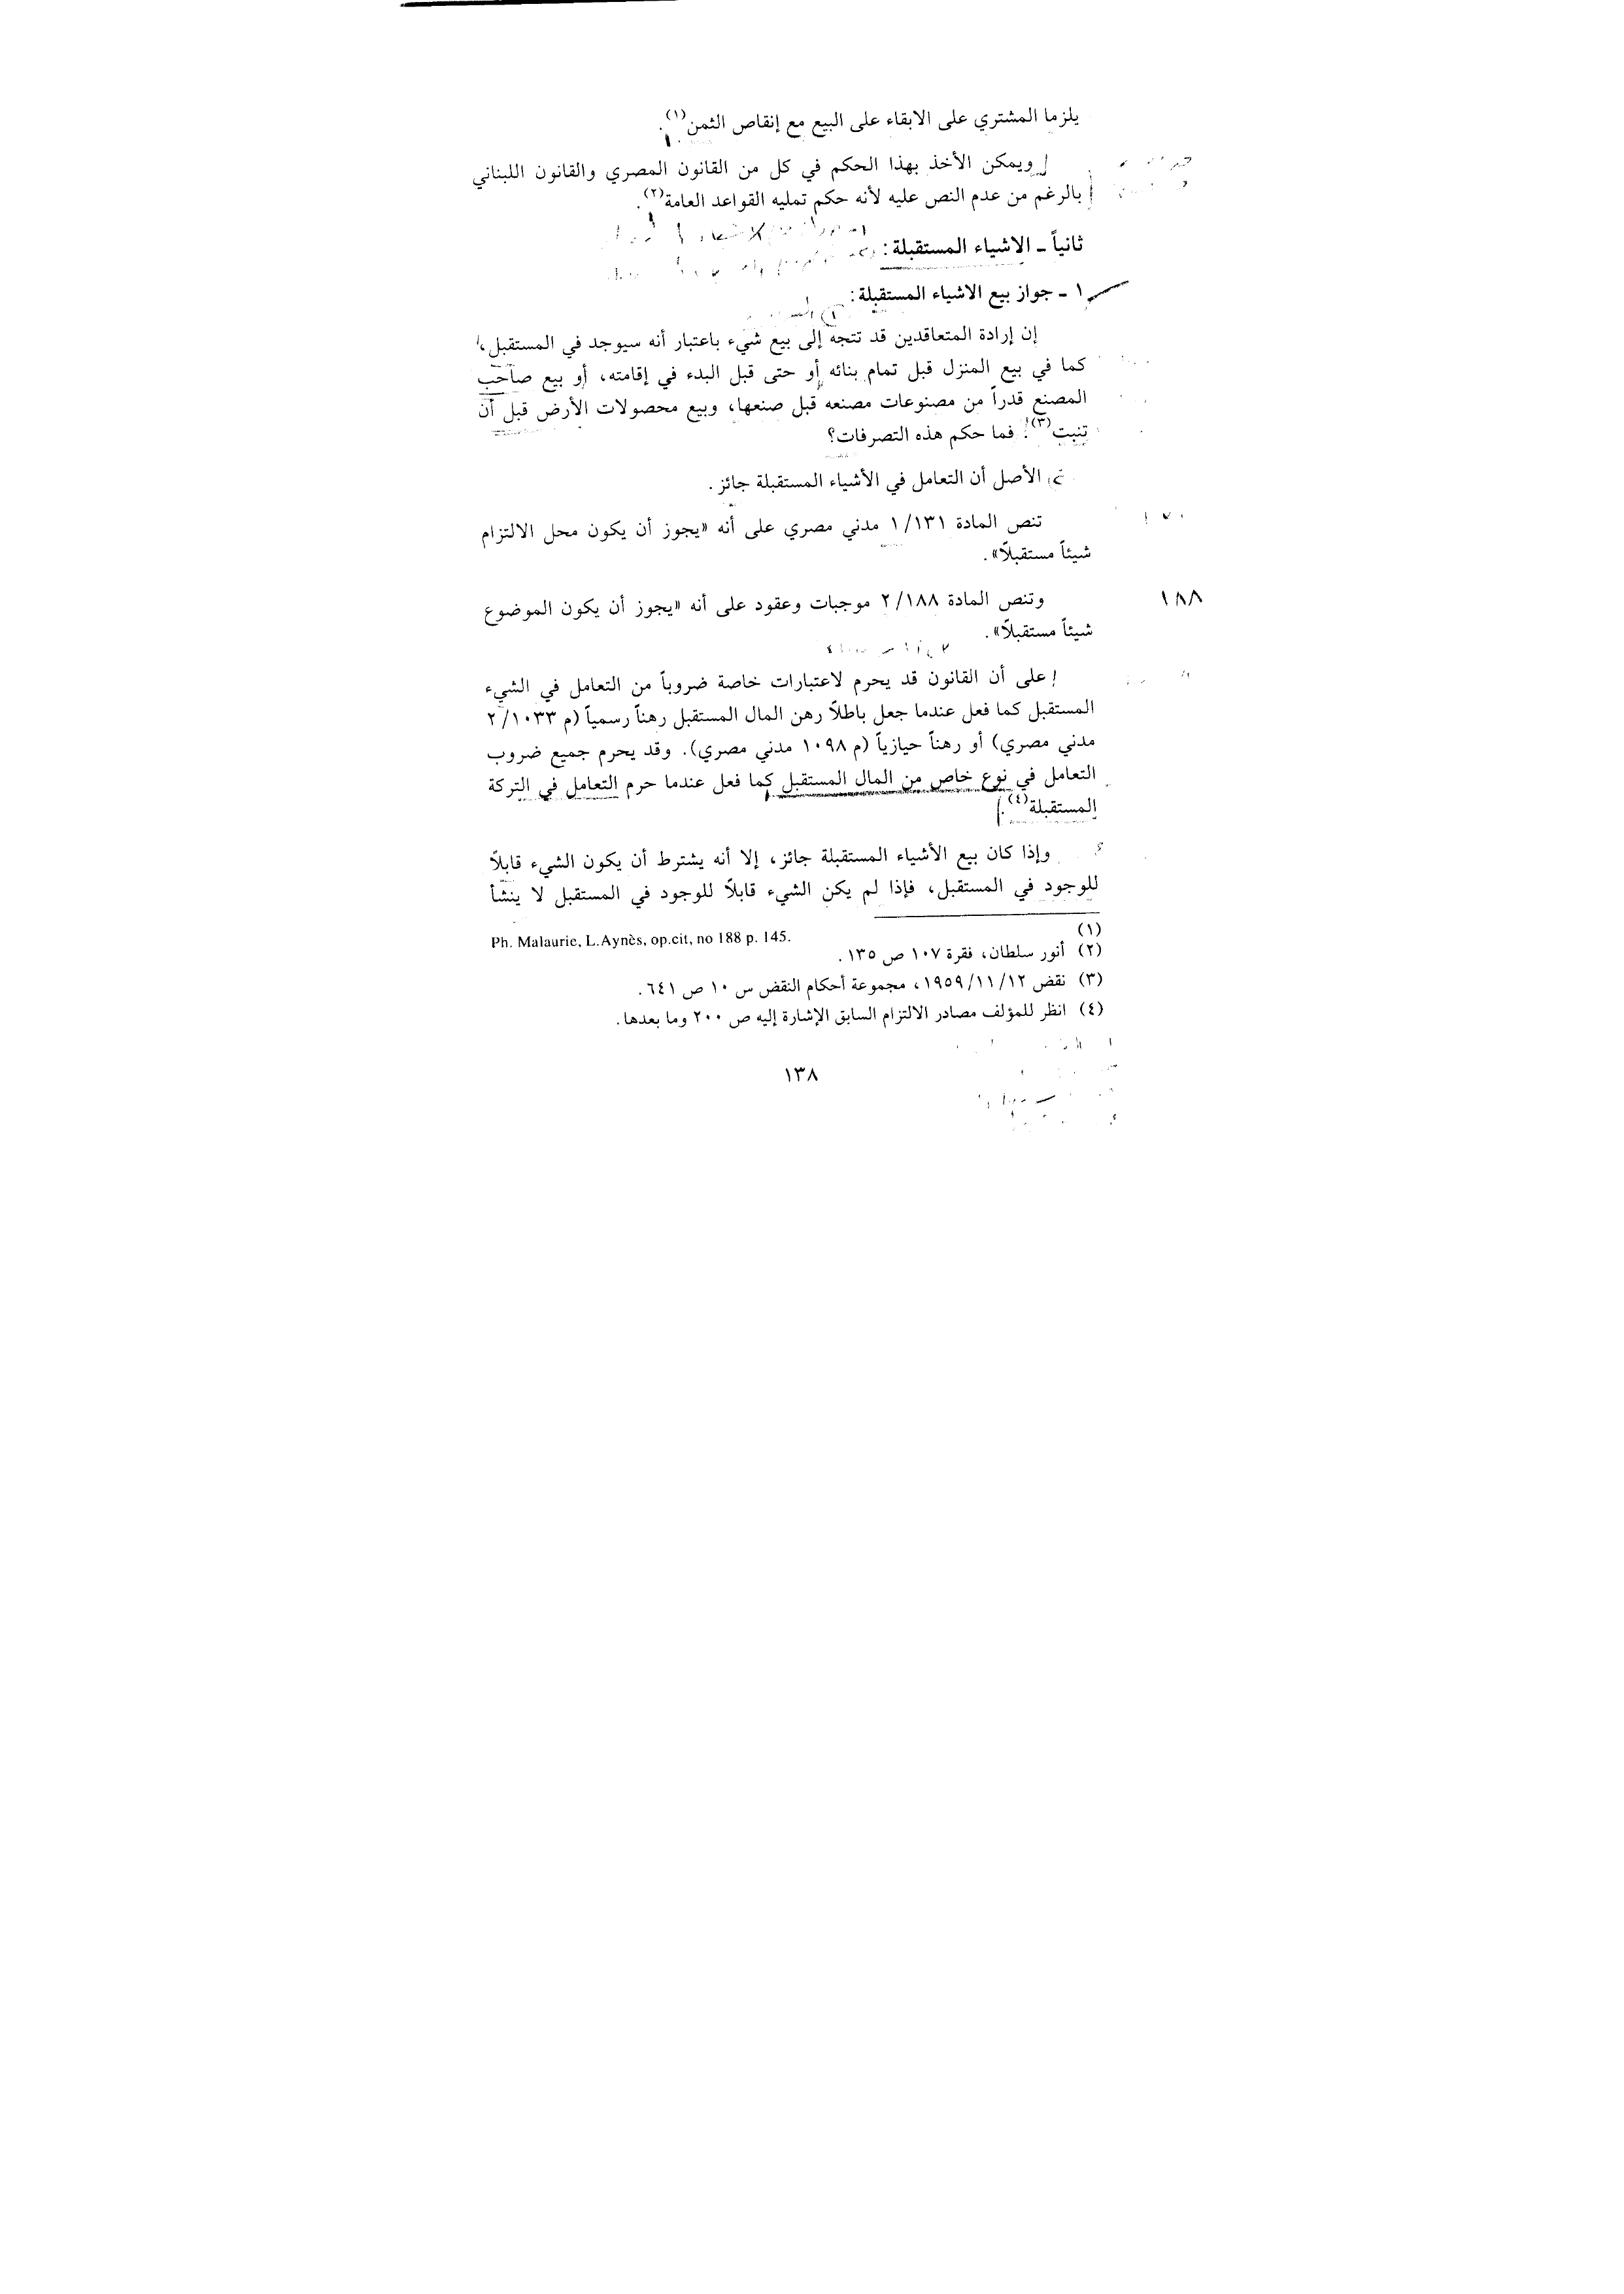 يلزما المشتري على الابقاء على البيع مع إنقاص الثمن(١).
ويمكن الأخذ بهذا الحكم في كل من القانون المصري والقانون اللبناني
بالرغم من عدم النص عليه لأنه حكم تمليه القواعد العامة(٢).
ثانياً ـ الاشياء المستقبلة:
١ ـ جواز بيع الاشياء المستقبلة:
إن إرادة المتعاقدين قد تتجه إلى بيع شيء باعتبار أنه سيوجد في المستقبل،
كما في بيع المنزل قبل تمام بنائه أو حتى قبل البدء في إقامته، أو بيع صاحب
المصنع قدراً من مصنوعات مصنعه قبل صنعها، وبيع محصولات الأرض قبل أن
تنبت(٣). فما حكم هذه التصرفات؟
الأصل أن التعامل في الأشياء المستقبلة جائز.
تنص المادة ١/١٣١ مدني مصري على أنه «يجوز أن يكون محل الالتزام
شيئاً مستقبلاً».
وتنص المادة ٢/١٨٨ موجبات وعقود على أنه «يجوز أن يكون الموضوع
١٨٨
شيئاً مستقبلاً».
على أن القانون قد يحرم لاعتبارات خاصة ضروباً من التعامل في الشيء
المستقبل كما فعل عندما جعل باطلاً رهن المال المستقبل رهناً رسمياً (م ٢/١٠٣٣
مدني مصري) أو رهناً حيازياً (م ١٠٩٨ مدني مصري). وقد يحرم جميع ضروب
التعامل في نوع خاص من المال المستقبل كما فعل عندما حرم التعامل في التركة
المستقبلة(٤).
وإذا كان بيع الأشياء المستقبلة جائز، إلا أنه يشترط أن يكون الشيء قابلاً
للوجود في المستقبل، فإذا لم يكن الشيء قابلاً للوجود في المستقبل لا ينشأ
(١) Ph. Malaurie, L.Aynès, op.cit, no 188 p. 145.
(٢) أنور سلطان، فقرة ١٠٧ ص ١٣٥.
(٣) نقض ١٩٥٩/١١/١٢، مجموعة أحكام النقض س ١٠ ص ٦٤١.
(٤) انظر للمؤلف مصادر الالتزام السابق الإشارة إليه ص ٢٠٠ وما بعدها.
١٣٨